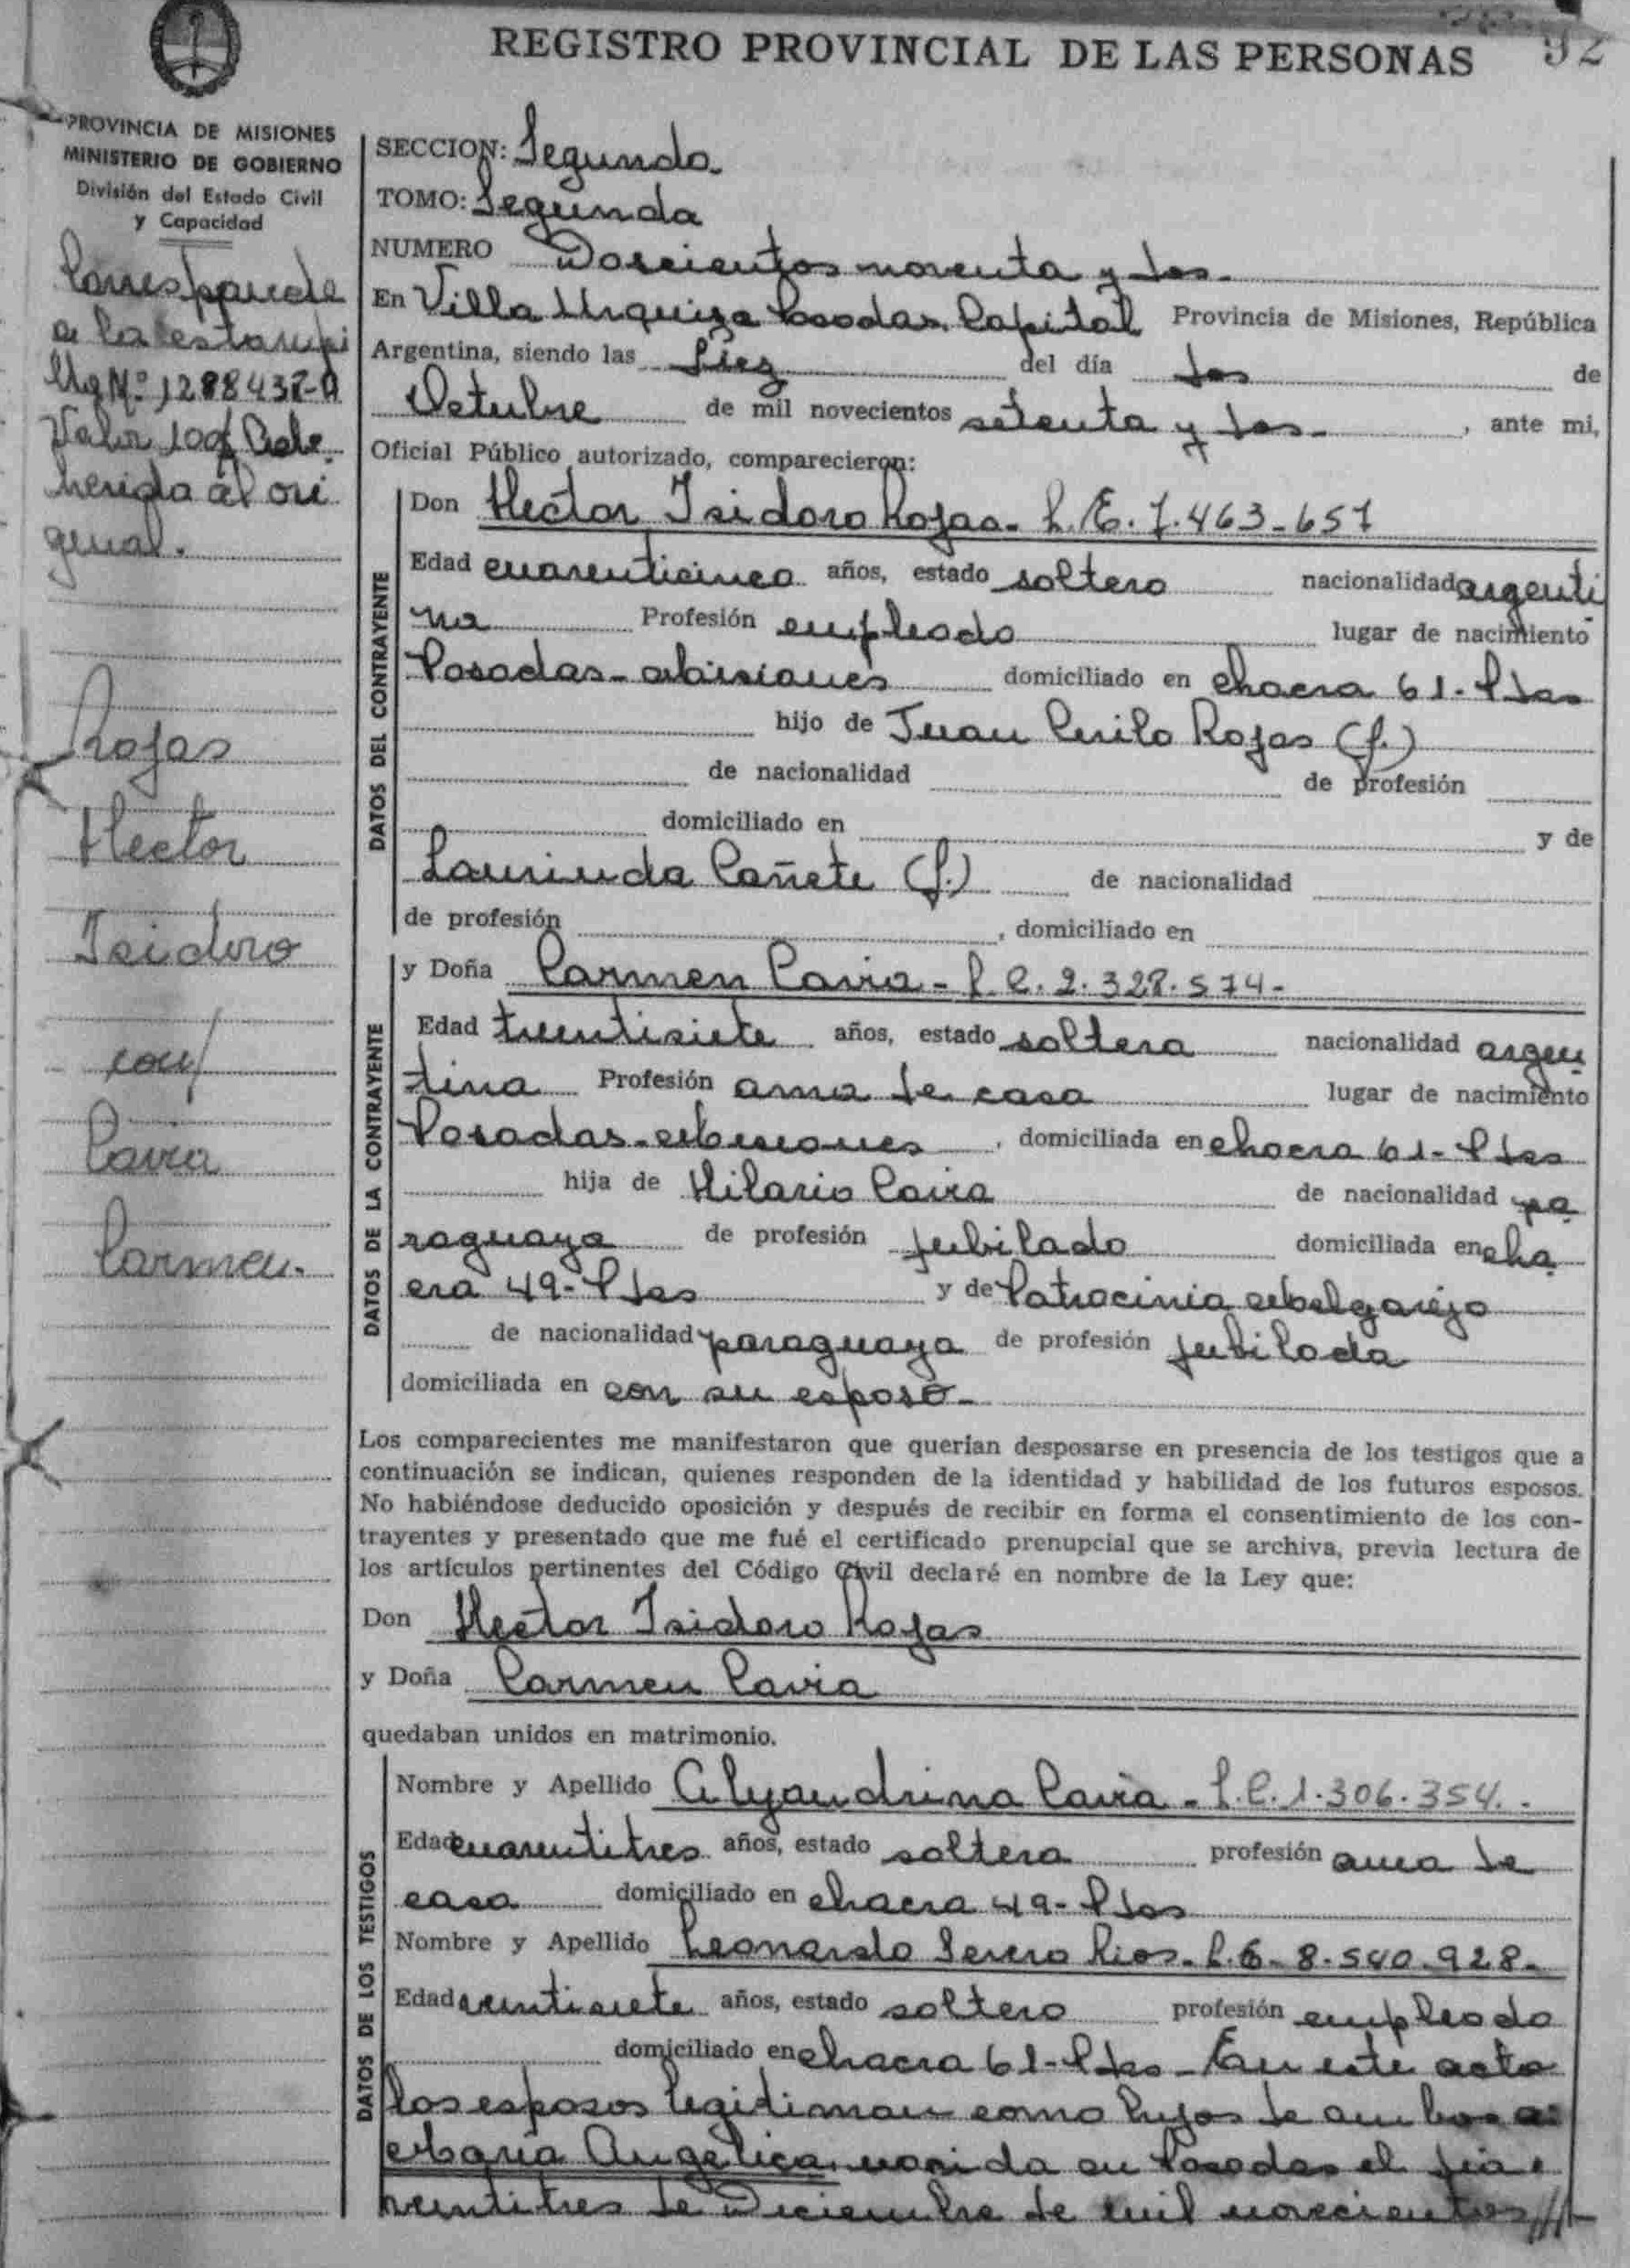 REGISTRO PROVINCIAL DE LAS PERSONAS 92
PROVINCIA DE MISIONES
MINISTERIO DE GOBIERNO
División del Estado Civil
y Capacidad
Corresponde
a la estampi
lla Nº 1288438-A
Valor 100$ Adhe
herida al ori
ginal.
Rojas
Hector
Isidoro
con/
Cavia
Carmen.
SECCION: Segunda.
TOMO: Segunda
NUMERO Doscientos noventa y dos.
En Villa Urquiza Posadas, Capital Provincia de Misiones, República
Argentina, siendo las diez del día dos de
Octubre de mil novecientos setenta y dos- , ante mi,
Oficial Público autorizado, comparecieron:
DATOS DEL CONTRAYENTE
Don Hector Isidoro Rojas- L.E. 7.463-657
Edad cuarenticinco años, estado soltero nacionalidad argenti
na Profesión empleado lugar de nacimiento
Posadas-Misiones domiciliado en chacra 61-Pdas
hijo de Juan Cirilo Rojas (f.)
de nacionalidad de profesión
domiciliado en y de
Laurinda Cañete (f.) de nacionalidad
de profesión , domiciliado en
DATOS DE LA CONTRAYENTE
y Doña Carmen Cavia- L.C. 2.328.574-
Edad trentisiete años, estado soltera nacionalidad argen
tina Profesión ama de casa lugar de nacimiento
Posadas-Misiones , domiciliada en chacra 61-Pdas
hija de Hilario Cavia de nacionalidad pa
raguaya de profesión jubilado domiciliada en cha
cra 49-Pdas y de Patrocinia Melgarejo
de nacionalidad paraguaya de profesión jubilada
domiciliada en con su esposo-
Los comparecientes me manifestaron que querían desposarse en presencia de los testigos que a
continuación se indican, quienes responden de la identidad y habilidad de los futuros esposos.
No habiéndose deducido oposición y después de recibir en forma el consentimiento de los con-
trayentes y presentado que me fué el certificado prenupcial que se archiva, previa lectura de
los artículos pertinentes del Código Civil declaré en nombre de la Ley que:
Don Hector Isidoro Rojas
y Doña Carmen Cavia
quedaban unidos en matrimonio.
DATOS DE LOS TESTIGOS
Nombre y Apellido Alejandrina Cavia- L.C. 1.306.354.-
Edad cuarentitres años, estado soltera profesión ama de
casa domiciliado en chacra 49-Pdas
Nombre y Apellido Leonardo Rios- L.E- 8.540.928-
Edad ventisiete años, estado soltero profesión empleado
domiciliado en chacra 61-Pdas- En este acto
los esposos legitiman como hijos de ambos a:
Maria Angelica, nacida en Posadas el dia
ventitres de Diciembre de mil novecientos///-